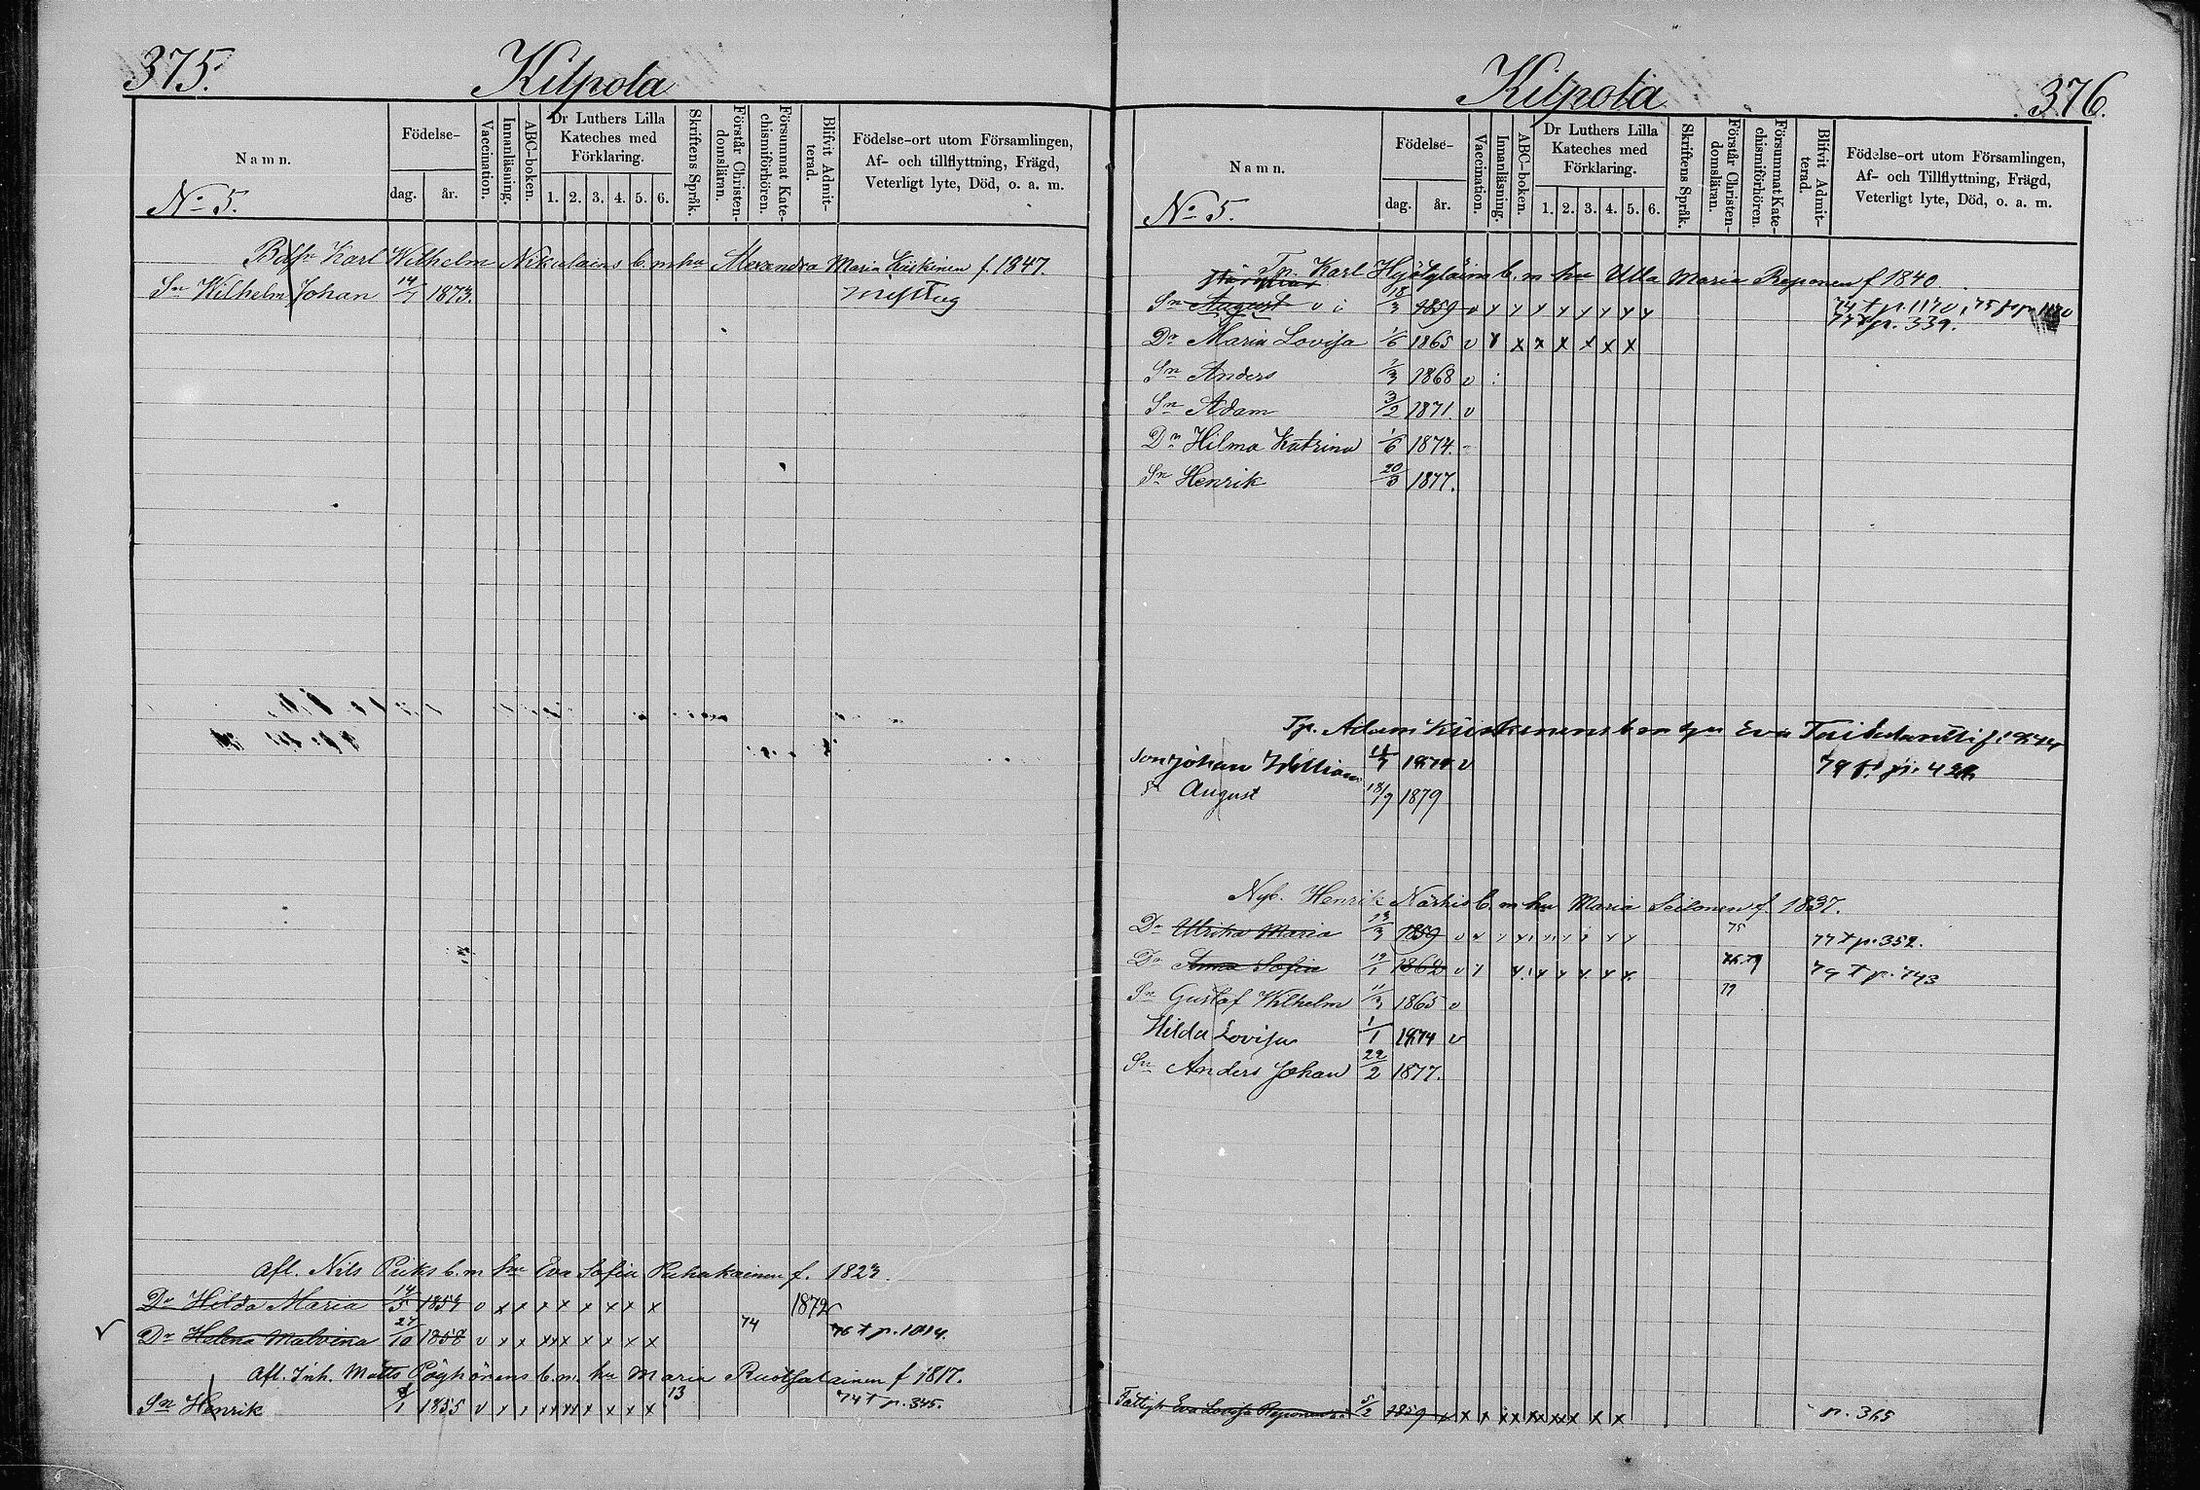 375.
Kilpola
Namn.
Födelse-
dag.
år.
Vaccination.
Innanläsning.
ABC-boken.
Dr Luthers Lilla
Kateches med
Förklaring.
1. 2. 3. 4. 5. 6.
Skriftens Språk.
Förstår Christen-
domsläran.
Försummat Kate-
chismiförhören.
Blifvit Admit-
terad.
Födelse-ort utom Församlingen,
Af- och tillflyttning, Frägd,
Veterligt lyte, Död, o. a. m.
No 5.
Karl Wilhelm Nikolains b. m hu Alexandra Maria Kiiskinen f. 1847.
Sn Wilhelm Johan 14/7 1873.
Afl. Nils Piiks b. m hu Eva Sofia Puhakainen f. 1823.
Dr Hilda Maria 14/5 1854 v x x x x x x x x 1872
Dr Helena Malvina 24/10 1858 v x x x x x x x x x 74 76 t p. 1014.
Afl. Inh. Matts Pöyhönens b. m. hu Maria f 1817.
Sn Henrik 1855 v x x x x x x x x x x 13 74 t p. 345.
Kilpola
376.
Namn.
Födelse-
dag.
år.
Vaccination.
Innanläsning.
ABC-boken.
Dr Luthers Lilla
Kateches med
Förklaring.
1. 2. 3. 4. 5. 6.
Skriftens Språk.
Förstår Christen-
domsläran.
Försummat Kate-
chismiförhören.
Blifvit Admit-
terad.
Födelse-ort utom Församlingen,
Af- och Tillflyttning, Frägd,
Veterligt lyte, Död, o. a. m.
No 5.
Tp. Karl b. m hu Ulla Maria Reponen f 1840.
Sn August 18/3 1859 v x x x x x x x x 74 t p. 1170, 75 fr p. 1170
77 t p. 339.
Dr Maria Lovisa 1/6 1865 v x x x x x x x
Sn Anders 1/3 1868 v
Sn Adam 3/2 1871. v
Dr Hilma Katrina 1/6 1874.
Sn Henrik 20/3 1877.
Tp. Adam Kiiskinens b m hu Eva
son Johan William v
Sn August 18/9 1879
Nyb. Henrik Närhis b. m hu Maria Seilonen f. 1837.
Dr Ulrika Maria 13/3 1859 v x x x x x x x x 75 77 t p. 352.
Dr Anna Sofia 19/1 1862 v x x x x x x x 79 t p. 743
Sn Gustaf Wilhelm 11/3 1865 v 79
Hilda Lovisa 1/1 1874 v
Sn Anders Johan 22/2 1877.
Eva Lovisa 5/2 1859 x x x x x x x x x x p. 365